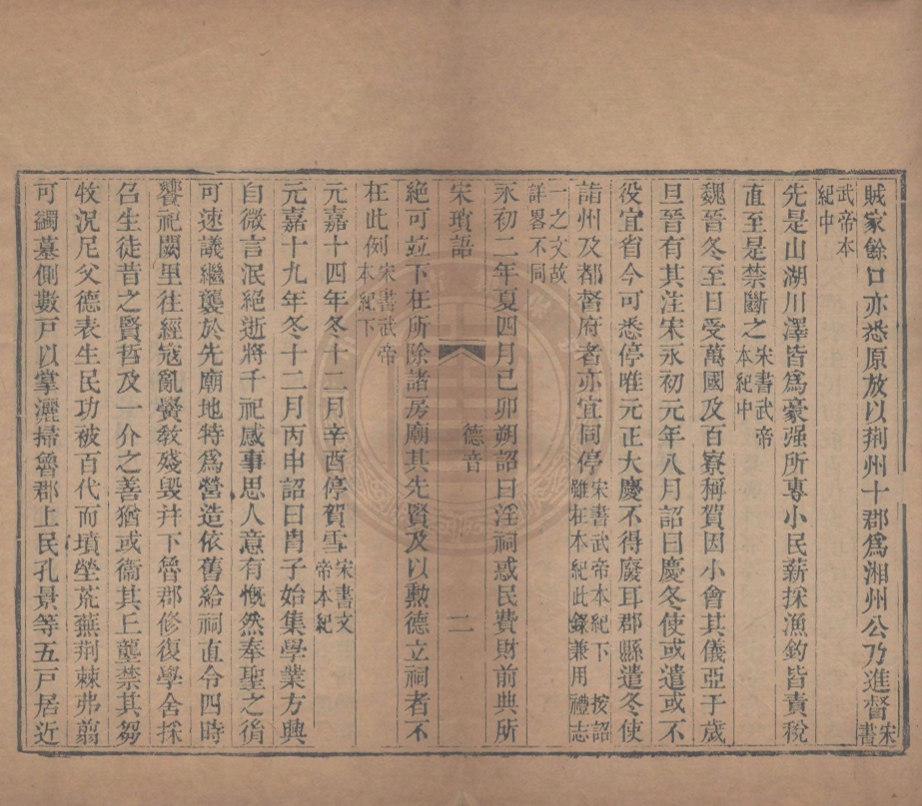 賊家餘口亦悉原放以荆州十郡爲湘州公乃進督宋書
武帝本
紀中
先是山湖川澤皆爲豪强所專小民薪採漁釣皆責稅
直至是禁斷之宋書武帝
本紀中
魏晉冬至日受萬國及百寮稱賀因小會其儀亞于歲
旦晉有其注宋永初元年八月詔曰慶冬使或遣或不
役宜省今可悉停唯元正大慶不得廢耳郡縣遣冬使
詣州及都督府者亦宜同停宋書武帝本紀下 按詔
雖在本紀此錄兼用禮志
一之文故
詳畧不同
永初二年夏四月己卯朔詔曰淫祠惑民費財前典所
宋瑣語 德音 二
絕可竝下在所除諸房廟其先賢及以勲德立祠者不
在此例宋書武帝
本紀下
元嘉十四年冬十二月辛酉停賀雪宋書文
帝本紀
元嘉十九年冬十二月丙申詔曰胄子始集學業方興
自微言泯絕逝將千祀感事思人意有慨然奉聖之後
可速議繼襲於先廟地特爲營造依舊給祠直令四時
饗祀闕里往經寇亂黌敎殘毀幷下魯郡修復學舍採
召生徒昔之賢哲及一介之善猶或衞其丘壟禁其芻
牧況尼父德表生民功被百代而墳塋荒蕪荆棘弗翦
可蠲墓側數戸以掌灑掃魯郡上民孔景等五戸居近